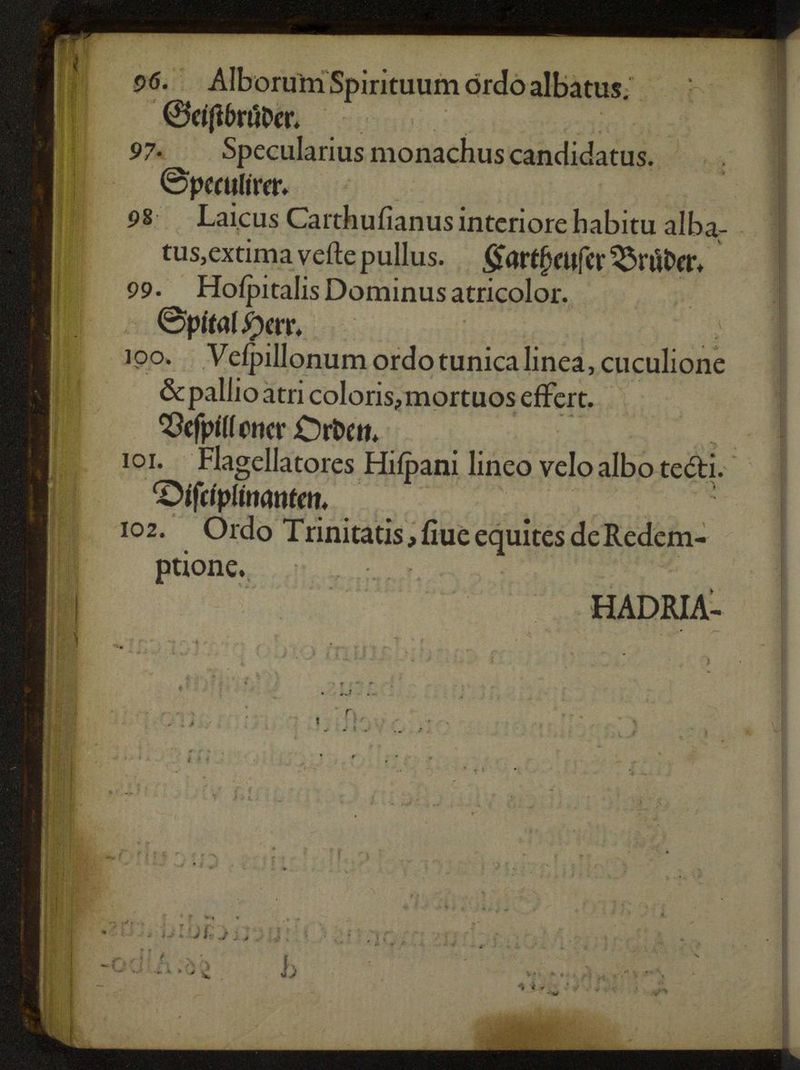 96. Alborum Spirituum ordo albatus.
Geiſtbrüder.
97. Specularius monachus candidatus.
Speculirer.
98. Laicus Carthuſianus interiore habitu alba-
tus, extima veſte pullus. Cartheuſer Brüder.
99. Hoſpitalis Dominus atricolor.
Spital Herr.
100. Veſpillonum ordo tunica linea, cuculione
& pallio atri coloris, mortuos effert.
Veſpilloner Orden.
101. Flagellatores Hiſpani lineo velo albo tecti.
Diſciplinanten.
102. Ordo Trinitatis, ſiue equites de Redem-
ptione.
HADRIA-